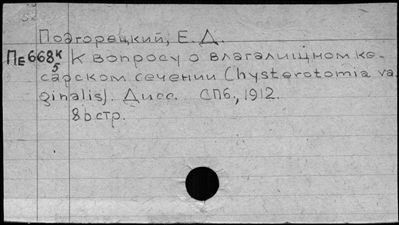 Подгорецкий, Е. Д.
Пе668 к/5 К вопросу о влагалищном ке-
сарском сечении (hysterotomia va-
ginalis). Дисс. СПб., 1912.
86 стр.